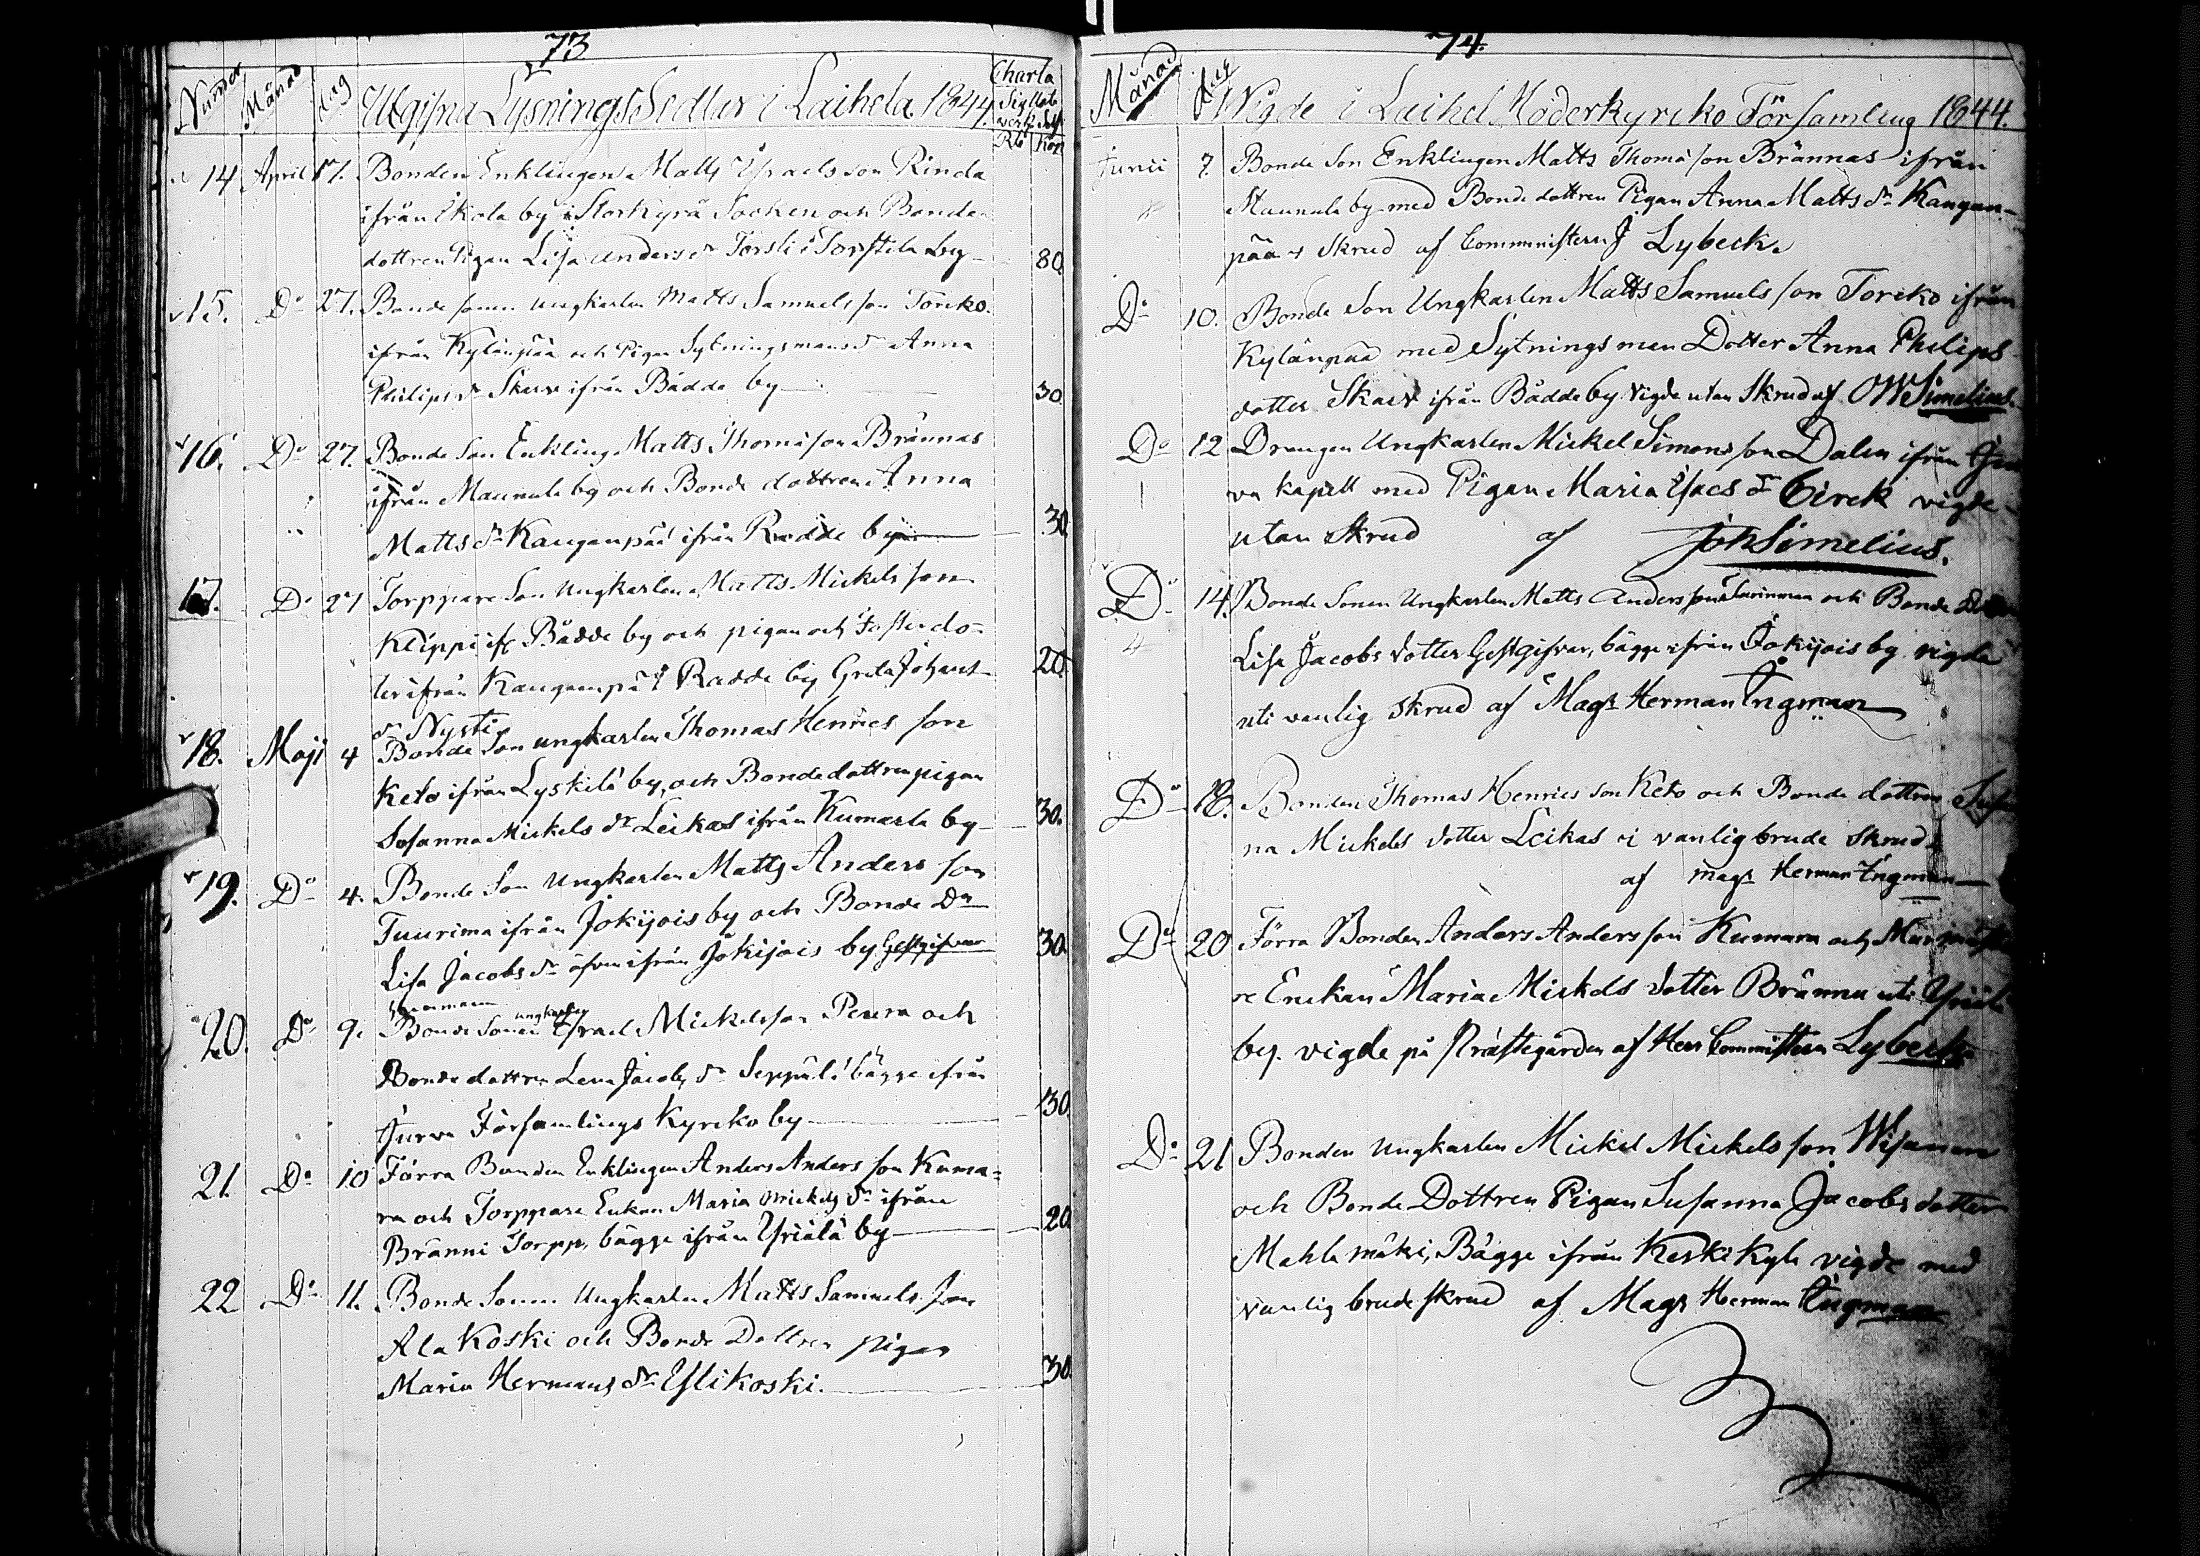 73
Numer Månad dag Utgifna Lysnings Sedlar i Laihela 1844. Charta
Rbl Kop
14 April 17. Bonden Enklingen Matts Israels son Rinda
ifrån Ikola by i Storkyrå Socken och Bonde
dottren Pigan Lisa Anders dr Torsti i Torstila by 80
15. Do 27. Bonde sonen ungkarlen Matts Samuels son Torcko
ifrån Kylänpää och Pigan Sytningsmans dr Anna
Philips dr Skarv ifrån Bådde by 30
16. Do 27. Bonde Son Enkling Matts Thomæ son Brännas
ifrån Maunula by och Bonde dottren Anna
Matts dr Kanganpää ifrån Radde by 30
17. Do 27 Torppare Son Ungkarlen Matts Mickels son
Klippi ifr Bådde by och pigan och Foster do-
ter ifrån Kanganpää Radde by Greta Johans 20
dr Nysti
18. Maji 4 Bonde Son ungkarlen Thomas Henrics son
Keto ifrån Lyskilä by, och Bondedottren pigan
Sosanna Mickels dr Leikas ifrån Kumarla by 30.
19. Do 4. Bonde Son Ungkarlen Matts Anders son
Tuurima ifrån Jokijois by och Bonde Dn
Lisa Jacobs dr äfven ifrån Jokijois by Gestgifvar 30.
ungkarlen
20. Do 9. Bonde Sonen Israel Mickelsson Peura och
Bonde dottren Lena Jacobs dr Seppälä bägge ifrån
Jurva Församlings Kyrkoby 30.
21. Do 10 Förra Bonden Enklingen Anders Anders son Kuma-
ra och Torppare Enkan Maria Mickels dr ifrån
Bränni Torpp, bägge ifrån Yriälä by 20
22 Do 11. Bonde Sonen Ungkarlen Matts Samuels son
Ala Koski och Bonde Dottren pigan
Maria Hermans dr Ylikoski. 30.
74.
Månad dag Vigde i Laihel Moderkyrcko Församling 1844.
Junii 7. Bonde Son Enklingen Matts Thomæ son Brännas ifrån
Maunula by med Bonde dottren Pigan Anna Matts dr Kangan-
pää Skrud af Comministern J Lybeck.
Do 10. Bonde Son Ungkarlen Matts Samuels son Torcko ifrån
Kylänpää med Sytnings man Dotter Anna Philips
dotter Skarv ifrån Bådde by vigde utan Skrud af OW Simelius.
Do 12 Drengen Ungkarlen Mickel Simons son Dalen ifrån Jur
va kapell med Pigan Maria Isacs dr Birck vigde
utan Skrud af Joh Simelius.
Do 14. Bonde Sonen Ungkarlen Matts Anders son Tuurinman och Bonde
Lisa Jacobs dotter Gestgifvar, bägge ifrån Jokijois by vigda
uti vanlig Skrud af Magr Herman Ingman
Do 18. Bonden Thomas Henrics son Keto och Bonde dottren Susa
na Mickels dotter Leikas i vanlig brude Skrud
af Magr Herman Ingman
Do 20 Förra Bonden Anders Anders son Kumara och
re Enckan Maria Mickels dotter Bränna uti Yriälä
by. vigde på Prästegården af Herr Comministern Lybeck
Do 21 Bonden Ungkarlen Mickel Mickels son Wisanen
och Bonde Dottren Pigan Susanna Jacobs dotter
Mahlamäki, Bägge ifrån Keski Kylä vigde med
vanlig brudeskrud af Magr Herman Ingman